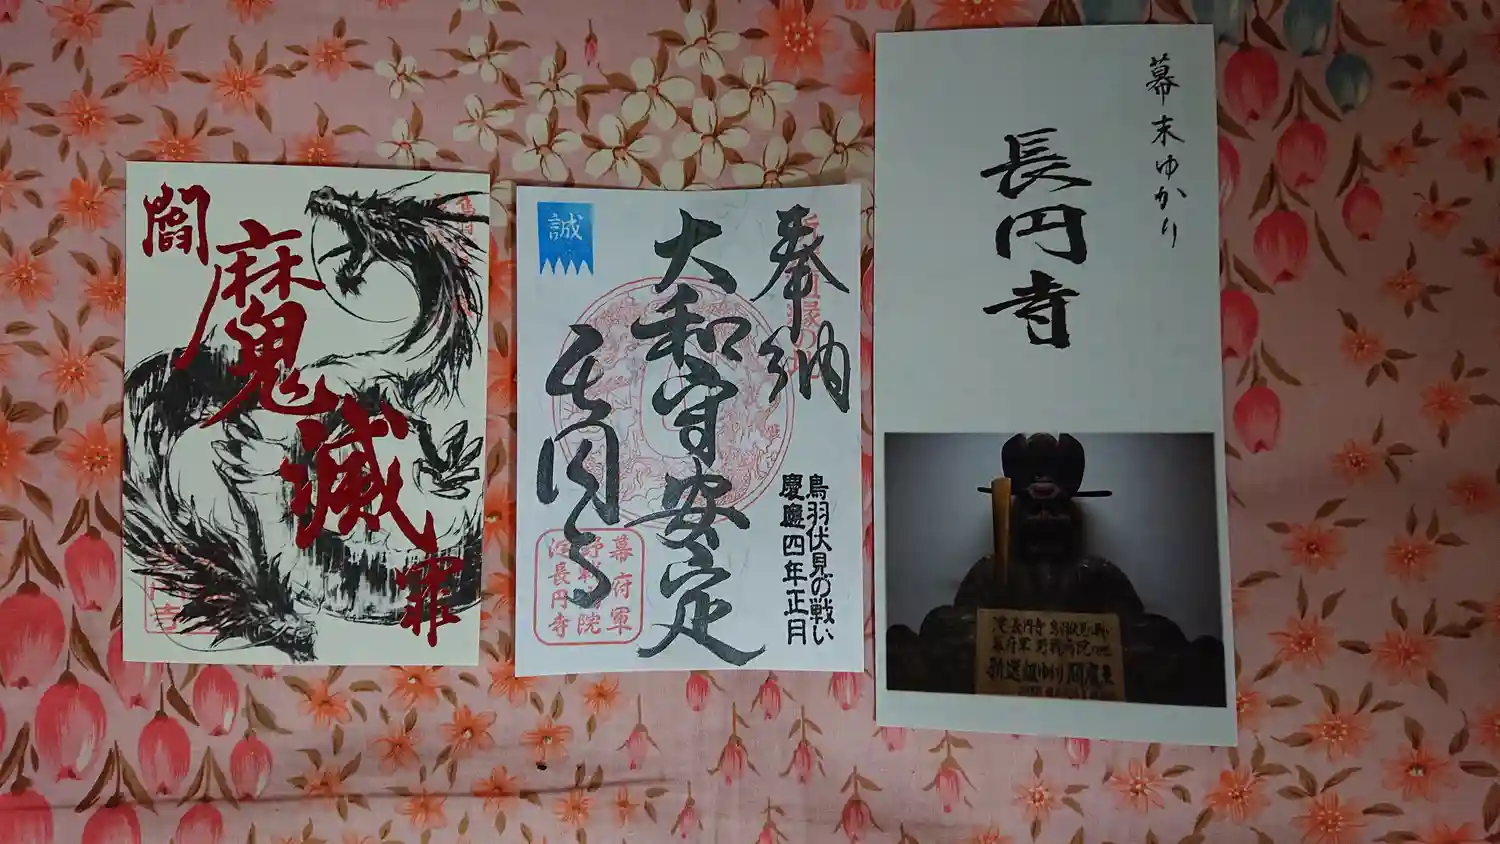 閻魔滅罪
誠
奉納
大和守安定
長円寺
鳥羽伏見の戦い
慶應四年正月
幕府軍
野戦病院
淀長円寺
幕末ゆかり
長円寺
淀長円寺 鳥羽伏見の戦い
幕府軍 野戦病院の地
新選組ゆかり閻魔像